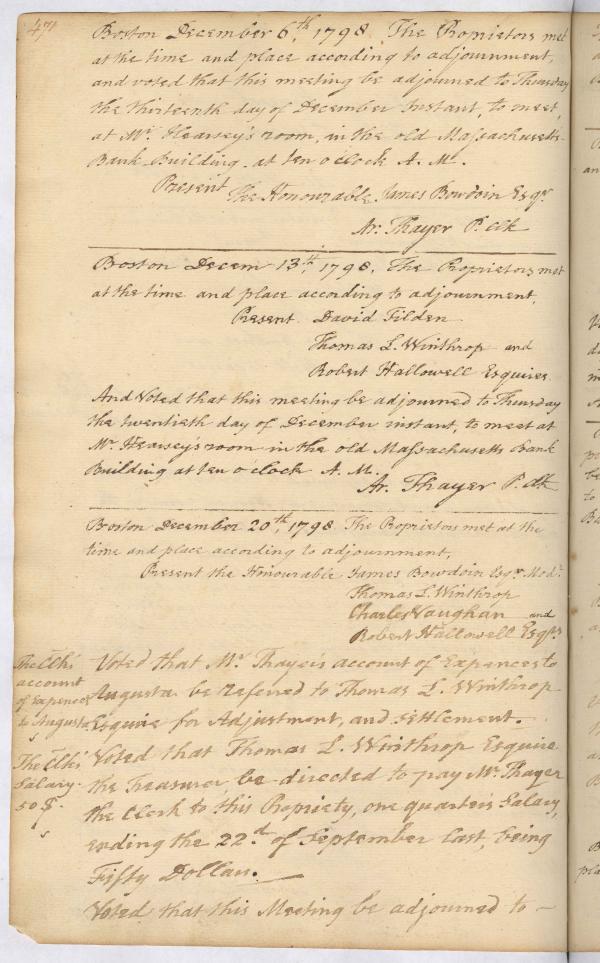 47
Boston December 6th, 1798. The Proprietors met
at the time and place according to adjournment,
and voted that this meeting be adjourned to Thursday
the thirteenth day of December Instant, to meet,
at Mr. Hearsey's room, in the old Massachusetts
Bank Building at ten o'clock A. M.
Present The Honourable James Bowdoin Esqr.
Ar: Thayer P. Clk
Boston Decem 13th, 1798, The Proprietors met
at the time and place according to adjournment,
Present David Filden
Thomas L. Winthrop and
Robert Hallowell Esquires
And Voted that this meeting be adjourned to Thursday
the twentieth day of December instant, to meet at
Mr. Hearsey's room in the old Massachusetts Bank
Building at ten o'clock A. M.
Ar. Thayer P. Clk
Boston December 20th, 1798 The Proprietors met at the
time and place according to adjournment,
Present the Honourable James Bowdoin Esqr. Modr.
Thomas L. Winthrop
Charles Vaughan and
Robert Hallowell Esqrs
The Clk's
account
of Expences
to Augusta
Voted that Mr. Thayer's account of Expences to
Augusta be referred to Thomas L. Winthrop
Esquire for Adjustment, and settlement.
The Clk's
Salary.
50 $.
Voted that Thomas L. Winthrop Esquire
the Treasurer, be directed to pay Mr. Thayer
the Clerk to this Propriety, one quarter's Salary,
ending the 22d. of September last, being
Fifty Dollars.
Voted that this Meeting be adjourned to —